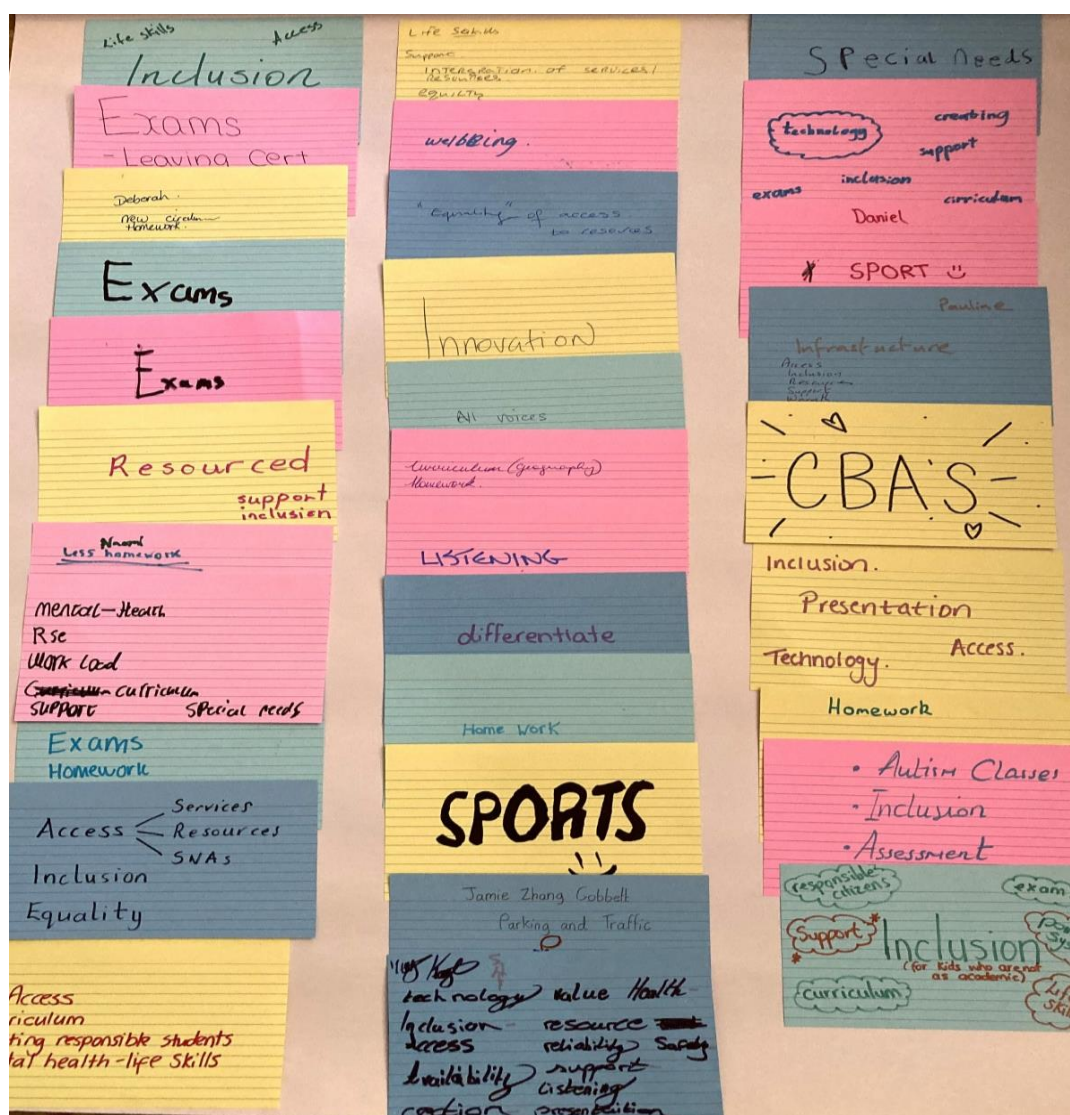 Life Skills Access
Inclusion
Exams
- Leaving Cert
Deborah.
new
Homework.
Exams
Exams
Resourced
support
inclusion
Naomi
Less homework
Mental-Health
Rse
Work Load
curriculum
Support Special needs
Exams
Homework
Access Services
Resources
SNAs
Inclusion
Equality
Access
riculum
ting responsible students
tal health-life skills
Life
Support
Intergration of services/
Resources
equilty
welbeing.
"Equality" of access
to resources
Innovation
All voices
Curriculum (geography)
Homework.
LISTENING
differentiate
Home work
SPORTS
Jamie Zhang Gobbett
Parking and Traffic
technology value Health
Inclusion resource
access reliability Safety
Availability support
Listening
presentation
Special needs
technology creating
support
inclusion
exams cirriculum
Daniel
* SPORT
Pauline
Infrastructure
Access
Inclusion
Resources
Support
CBA'S
Inclusion.
Presentation
Access.
Technology.
Homework
• Autism Classes
• Inclusion
• Assessment
responsible
citizens
exam
Support
Inclusion
(for kids who are not
as academic)
curriculum
Life